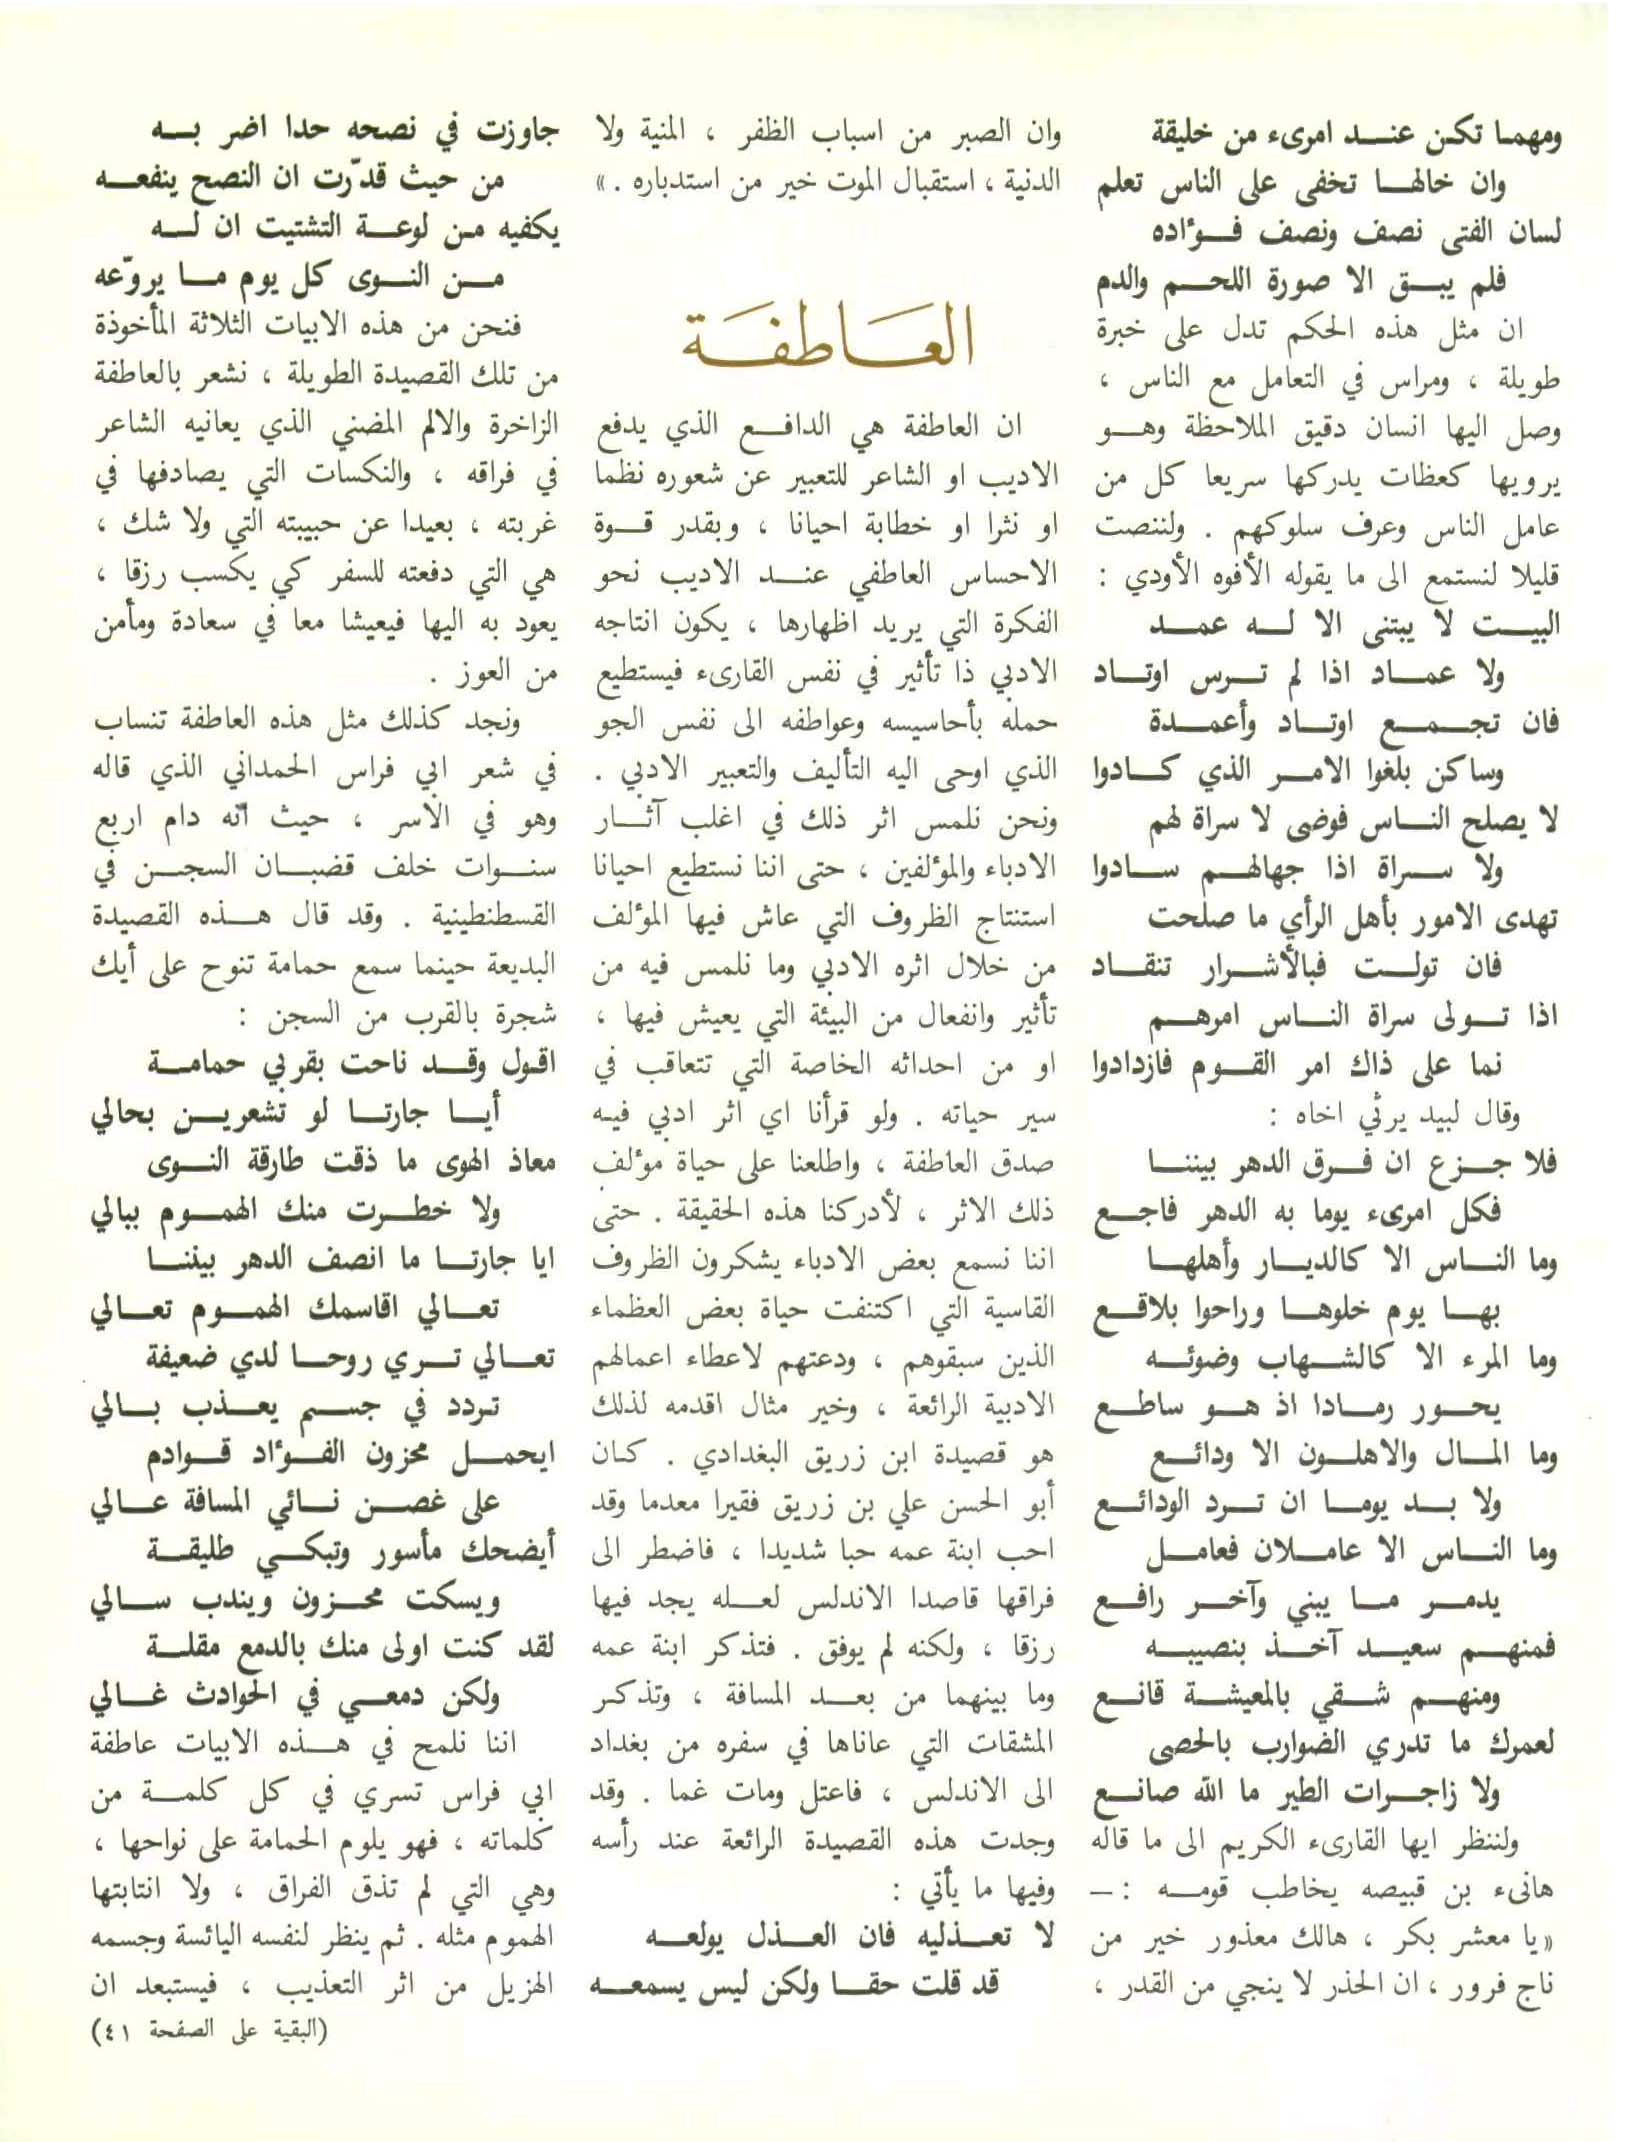 ومهما تكن عند امرىء من خليقة
وان خالها تخفى على الناس تعلم
لسان الفتى نصف ونصف فؤاده
فلم يبق الا صورة اللحم والدم
ان مثل هذه الحكم تدل على خبرة
طويلة ، ومراس في التعامل مع الناس ،
وصل اليها انسان دقيق الملاحظة وهو
يرويها كعظات يدركها سريعا كل من
عامل الناس وعرف سلوكهم . ولننصت
قليلا لنستمع الى ما يقوله الأفوه الأودي :
البيت لا يبتنى الا له عمد
ولا عماد اذا لم ترس اوتاد
فان تجمع اوتاد وأعمدة
وساكن بلغوا الامر الذي كادوا
لا يصلح الناس فوضى لا سراة لهم
ولا سراة اذا جهالهم سادوا
تهدى الامور بأهل الرأي ما صلحت
فان تولت فبالأشرار تنقاد
اذا تولى سراة الناس امرهم
نما على ذاك امر القوم فازدادوا
وقال لبيد يرثي اخاه :
فلا جزع ان فرق الدهر بيننا
فكل امرىء يوما به الدهر فاجع
وما الناس الا كالديار وأهلها
بها يوم خلوها وراحوا بلاقع
وما المرء الا كالشهاب وضوئه
يحور رمادا اذ هو ساطع
وما المال والاهلون الا ودائع
ولا بد يوما ان ترد الودائع
وما الناس الا عاملان فعامل
يدمر ما يبني وآخر رافع
فمنهم سعيد آخذ بنصيبه
ومنهم شقي بالمعيشة قانع
لعمرك ما تدري الضوارب بالحصى
ولا زاجرات الطير ما الله صانع
ولننظر ايها القارىء الكريم الى ما قاله
هانىء بن قبيصه يخاطب قومه : –
« يا معشر بكر ، هالك معذور خير من
ناج فرور ، ان الحذر لا ينجي من القدر ،
وان الصبر من اسباب الظفر ، المنية ولا
الدنية ، استقبال الموت خير من استدباره . »
العاطفة
ان العاطفة هي الدافع الذي يدفع
الاديب او الشاعر للتعبير عن شعوره نظما
او نثرا او خطابة احيانا ، وبقدر قوة
الاحساس العاطفي عند الاديب نحو
الفكرة التي يريد اظهارها ، يكون انتاجه
الادبي ذا تأثير في نفس القارىء فيستطيع
حمله بأحاسيسه وعواطفه الى نفس الجو
الذي اوحى اليه التأليف والتعبير الادبي .
ونحن نلمس اثر ذلك في اغلب آثار
الادباء والمؤلفين ، حتى اننا نستطيع احيانا
استنتاج الظروف التي عاش فيها المؤلف
من خلال اثره الادبي وما نلمس فيه من
تأثير وانفعال من البيئة التي يعيش فيها ،
او من احداثه الخاصة التي تتعاقب في
سير حياته . ولو قرأنا اي اثر ادبي فيه
صدق العاطفة ، واطلعنا على حياة مؤلف
ذلك الاثر ، لأدركنا هذه الحقيقة . حتى
اننا نسمع بعض الادباء يشكرون الظروف
القاسية التي اكتنفت حياة بعض العظماء
الذين سبقوهم ، ودعتهم لاعطاء اعمالهم
الادبية الرائعة ، وخير مثال اقدمه لذلك
هو قصيدة ابن زريق البغدادي . كان
أبو الحسن علي بن زريق فقيرا معدما وقد
احب ابنة عمه حبا شديدا ، فاضطر الى
فراقها قاصدا الاندلس لعله يجد فيها
رزقا ، ولكنه لم يوفق . فتذكر ابنة عمه
وما بينهما من بعد المسافة ، وتذكر
المشقات التي عاناها في سفره من بغداد
الى الاندلس ، فاعتل ومات غما . وقد
وجدت هذه القصيدة الرائعة عند رأسه
وفيها ما يأتي :
لا تعذليه فان العذل يولعه
قد قلت حقا ولكن ليس يسمعه
جاوزت في نصحه حدا اضر به
من حيث قدّرت ان النصح ينفعه
يكفيه من لوعة التشتيت ان له
من النوى كل يوم ما يروّعه
فنحن من هذه الابيات الثلاثة المأخوذة
من تلك القصيدة الطويلة ، نشعر بالعاطفة
الزاخرة والالم المضني الذي يعانيه الشاعر
في فراقه ، والنكسات التي يصادفها في
غربته ، بعيدا عن حبيبته التي ولا شك ،
هي التي دفعته للسفر كي يكسب رزقا ،
يعود به اليها فيعيشا معا في سعادة ومأمن
من العوز .
ونجد كذلك مثل هذه العاطفة تنساب
في شعر ابي فراس الحمداني الذي قاله
وهو في الأسر ، حيث انّه دام اربع
سنوات خلف قضبان السجن في
القسطنطينية . وقد قال هذه القصيدة
البديعة حينما سمع حمامة تنوح على أيك
شجرة بالقرب من السجن :
اقول وقد ناحت بقربي حمامة
أيا جارتا لو تشعرين بحالي
معاذ الهوى ما ذقت طارقة النوى
ولا خطرت منك الهموم ببالي
ايا جارتا ما انصف الدهر بيننا
تعالي اقاسمك الهموم تعالي
تعالي تري روحا لدي ضعيفة
تردد في جسم يعذب بالي
ايحمل محزون الفؤاد قوادم
على غصن نائي المسافة عالي
أيضحك مأسور وتبكي طليقة
ويسكت محزون ويندب سالي
لقد كنت اولى منك بالدمع مقلة
ولكن دمعي في الحوادث غالي
اننا نلمح في هذه الابيات عاطفة
ابي فراس تسري في كل كلمة من
كلماته ، فهو يلوم الحمامة على نواحها ،
وهي التي لم تذق الفراق ، ولا انتابتها
الهموم مثله . ثم ينظر لنفسه اليائسة وجسمه
الهزيل من اثر التعذيب ، فيستبعد ان
(البقية على الصفحة ٤١)